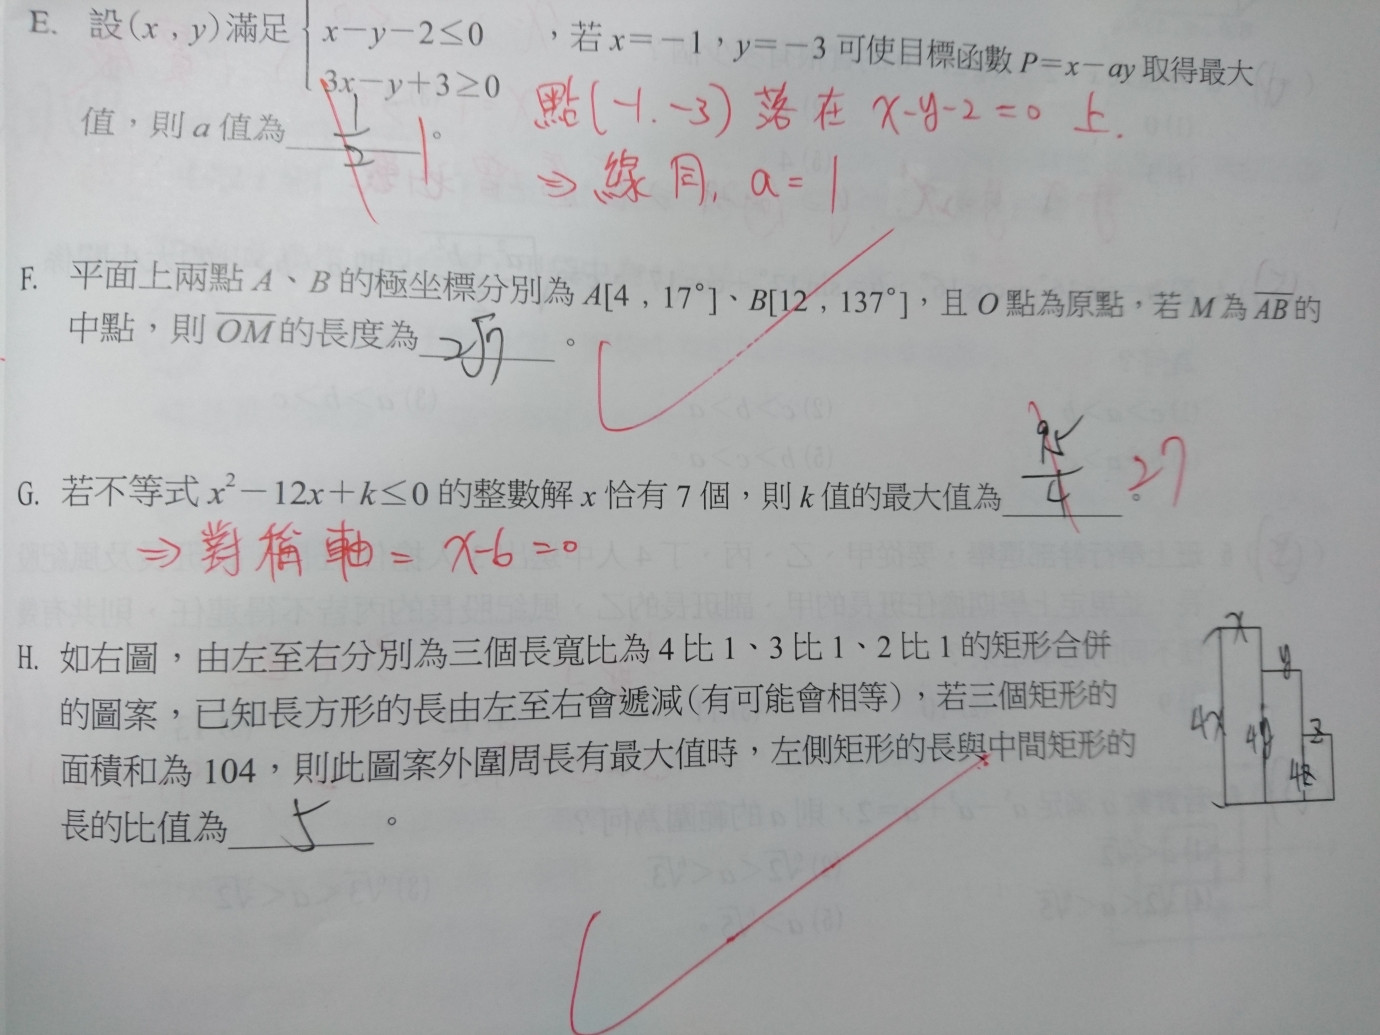 E. 設(x , y)滿足{x－y－2≤0 ，若 x＝－1，y＝－3 可使目標函數 P＝x－ay 取得最大
3x－y＋3≥0
值，則 a 值為 1/2 1 。
點(-1. -3) 落在 x-y-2=0 上.
⇒ 線同, a=1
F. 平面上兩點 A、B 的極坐標分別為 A[4 , 17°]、B[12 , 137°]，且 O 點為原點，若 M 為 AB 的
中點，則 OM 的長度為 2√7 。
G. 若不等式 x²－12x＋k≤0 的整數解 x 恰有 7 個，則 k 值的最大值為 95/4 。27
⇒ 對稱軸 = x-6=0
H. 如右圖，由左至右分別為三個長寬比為 4 比 1、3 比 1、2 比 1 的矩形合併
的圖案，已知長方形的長由左至右會遞減(有可能會相等)，若三個矩形的
面積和為 104，則此圖案外圍周長有最大值時，左側矩形的長與中間矩形的
長的比值為 5 。
x
y
4x 4y z
4z